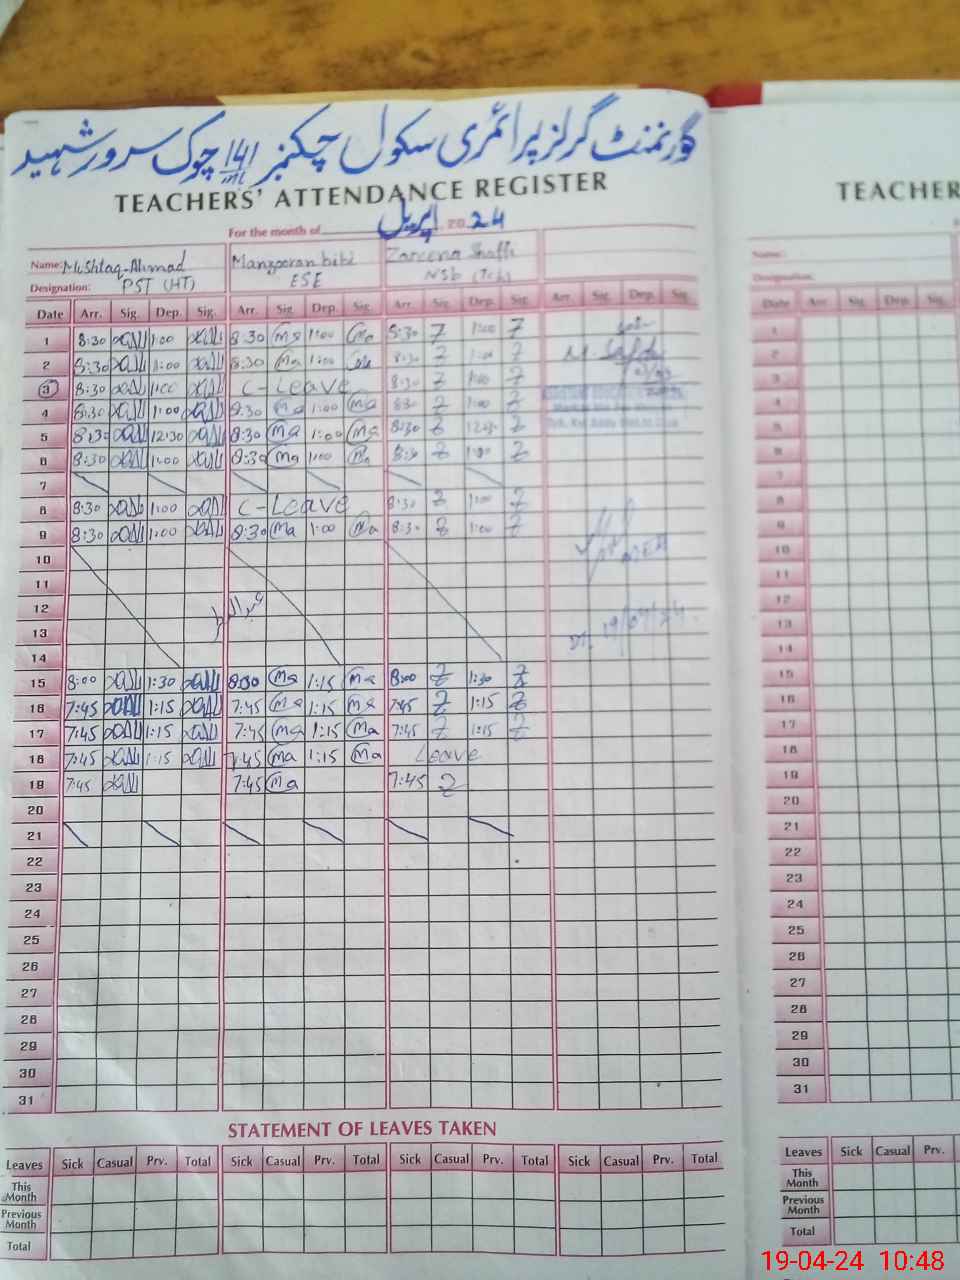 گورنمنٹ گرلز پرائمری سکول چکنمبر 141 چوک سرور شہید
TEACHERS' ATTENDANCE REGISTER
For the month of اپریل 2024
Name: Mushtaq Ahmad Manzooran bibi Zareena Shaffi
Designation: PST (HT) ESE NSB (Tch)
Date Arr. Sig. Dep. Sig. Arr. Sig. Dep. Sig. Arr. Sig. Dep. Sig. Arr. Sig. Dep. Sig.
1 8:30 1:00 8:30 Ma 1:00 8:30 1:00
2 8:30 1:00 8:30 Ma 1:00 8:30 1:00
3 8:30 1:00 C-Leave 8:30 1:00
4 8:30 1:00 8:30 Ma 1:00 Ma 8:30 1:00
5 8:30 12:30 8:30 Ma 1:00 Ma 8:30 12:30
6 8:30 1:00 8:30 Ma 1:00 Ma 8:30 1:00
7
8 8:30 1:00 C-Leave 8:30 1:00
9 8:30 1:00 8:30 Ma 1:00 Ma 8:30 1:00
10
11
12 عید الفطر
13
14 Dt. 19/04/24
15 8:00 1:30 8:00 Ma 1:15 Ma 8:00 1:30
16 7:45 1:15 7:45 Ma 1:15 Ma 7:45 1:15
17 7:45 1:15 7:45 Ma 1:15 Ma 7:45 1:15
18 7:45 1:15 7:45 Ma 1:15 Ma Leave
19 7:45 7:45 Ma 7:45
20
21
22
23
24
25
26
27
28
29
30
31
STATEMENT OF LEAVES TAKEN
Leaves Sick Casual Prv. Total Sick Casual Prv. Total Sick Casual Prv. Total Sick Casual Prv. Total
This Month
Previous Month
Total
TEACHER
Name:
Designation:
Date Arr. Sig. Dep. Sig.
1
2
3
4
5
6
7
8
9
10
11
12
13
14
15
16
17
18
19
20
21
22
23
24
25
26
27
28
29
30
31
Leaves Sick Casual Prv.
This Month
Previous Month
Total
19-04-24 10:48